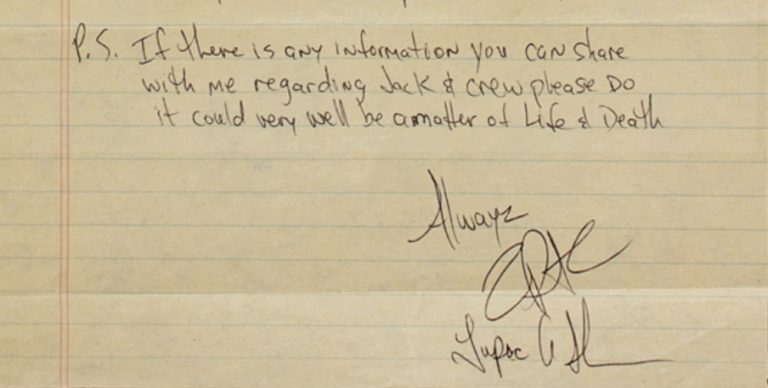 P.S. If there is any information you can share
with me regarding Jack & crew please Do
it could very well be a matter of Life & Death
Alwayz
Tupac A S